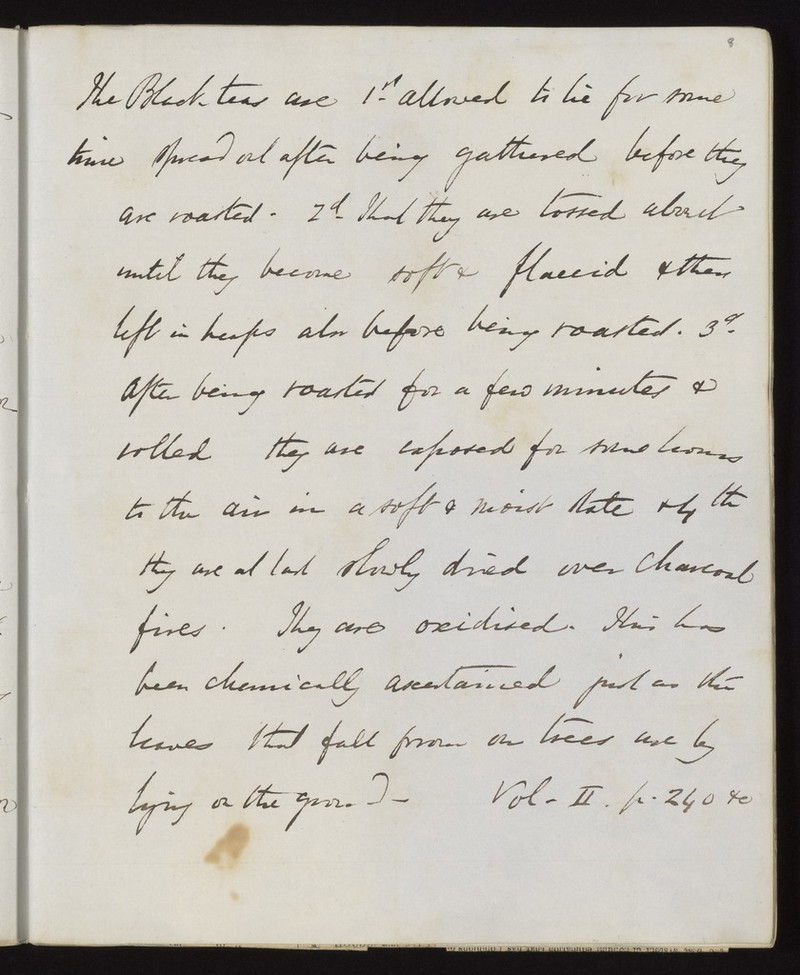 8
The Black teas are 1st allowed to lie for some
time spread out after being gathered before they
are roasted. 2d. That they are tossed about
until they become soft & flaccid & then
left in heaps also before being roasted. 3d.
After being roasted for a few minutes &
rolled they are exposed for some hours
to the air in a soft & moist state & 4th
they are at last slowly dried over charcoal
fires. They are oxidised. This has
been chemically ascertained just as the
leaves that fall from our trees are by
lying on the ground - Vol. II. p. 240 &c